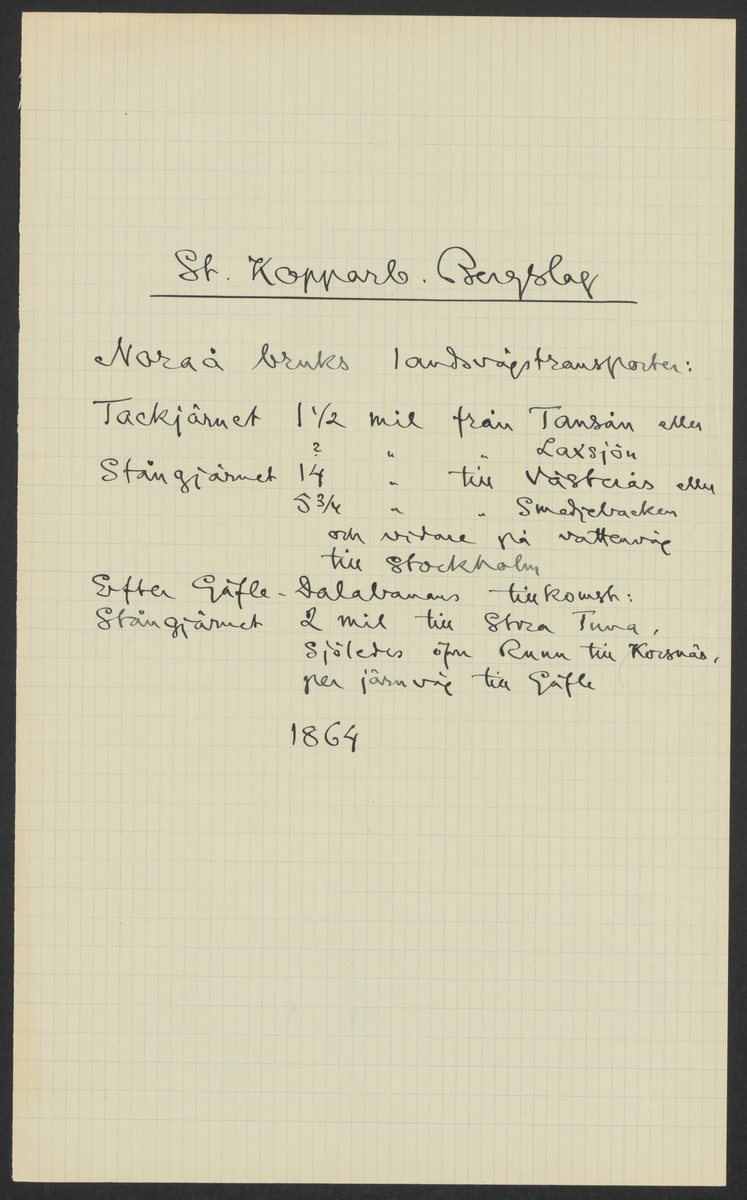 St. Kopparb. Bergslag
Noraå bruks landsvägstransporter:
Tackjärnet 1 1/2 mil från Tansån eller
? " " Laxsjön
Stångjärnet 14 " till Västerås eller
5 3/4 " " Smedjebacken
och vidare på vattenväg
till Stockholm
Efter Gäfle-Dalabanans tillkomst:
Stångjärnet 2 mil till Stora Tuna,
sjöledes öfver Runn till Korsnäs,
per järnväg till Gäfle
1864